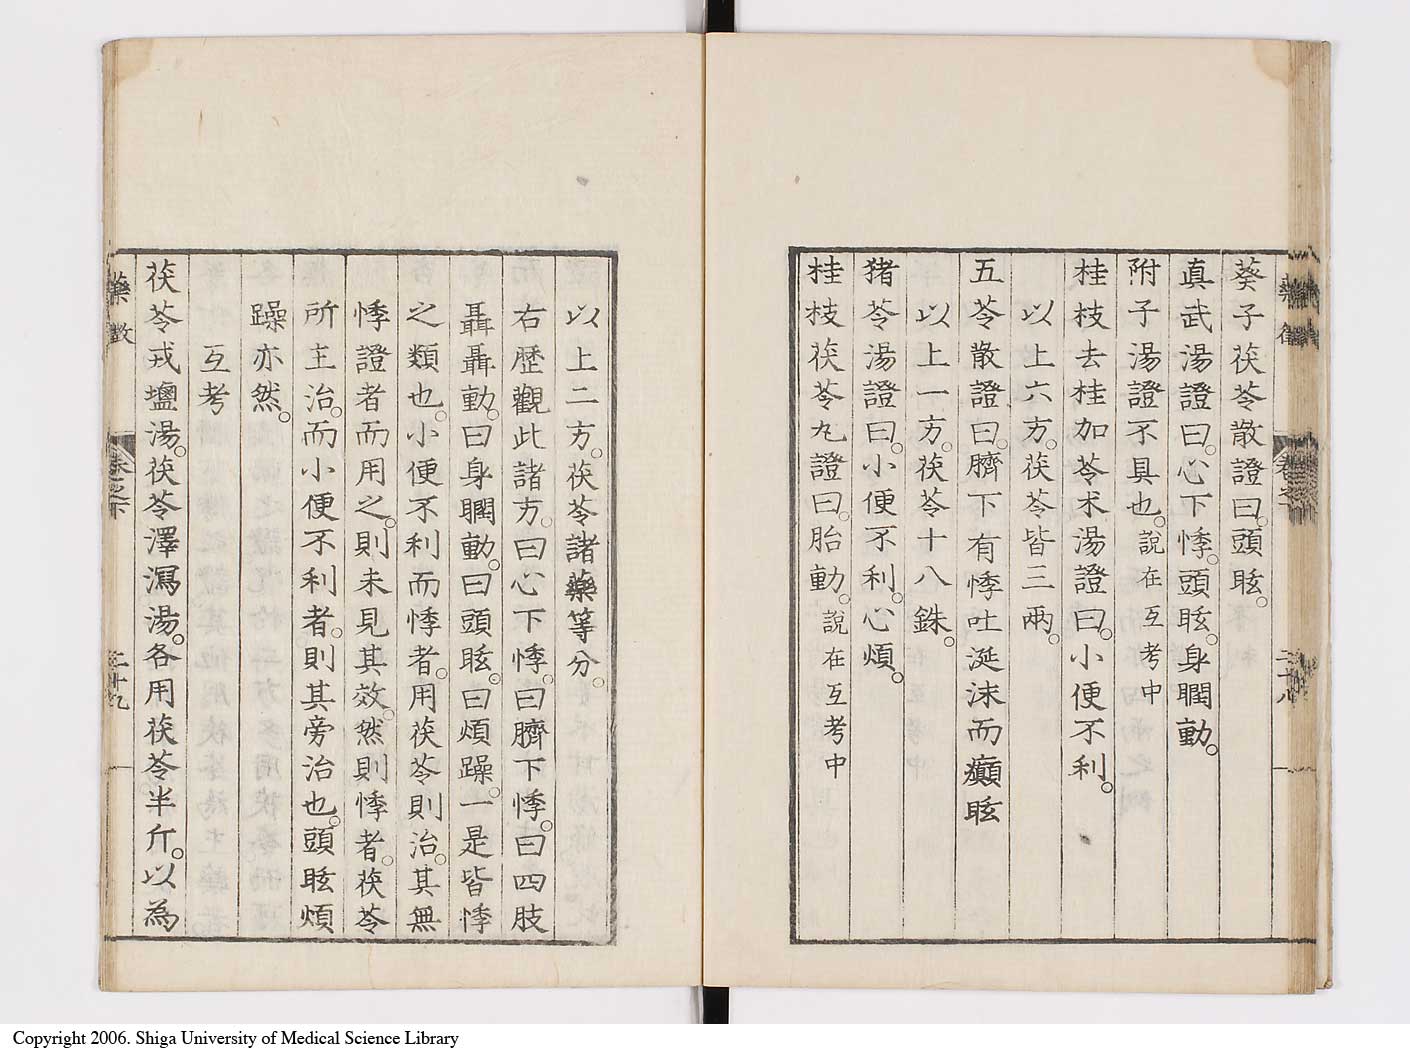 葵子茯苓散證曰。頭眩。
真武湯證曰。心下悸。頭眩。身瞤動。
附子湯證不具也。說在互考中
桂枝去桂加苓朮湯證曰。小便不利。
以上六方。茯苓皆三兩。
五苓散證曰。臍下有悸吐涎沫而癲眩
以上一方。茯苓十八銖。
猪苓湯證曰。小便不利。心煩。
桂枝茯苓丸證曰。胎動。說在互考中
以上二方。茯苓諸藥等分。
右歷觀此諸方。曰心下悸。曰臍下悸。曰四肢
聶聶動。曰身瞤動。曰頭眩。曰煩躁。一是皆悸
之類也。小便不利而悸者。用茯苓則治。其無
悸證者而用之。則未見其效。然則悸者。茯苓
所主治。而小便不利者。則其旁治也。頭眩煩
躁亦然。
互考
茯苓戎鹽湯。茯苓澤瀉湯。各用茯苓半斤。以為
藥徵
卷之下
二十九
二十八
Copyright 2006. Shiga University of Medical Science Library